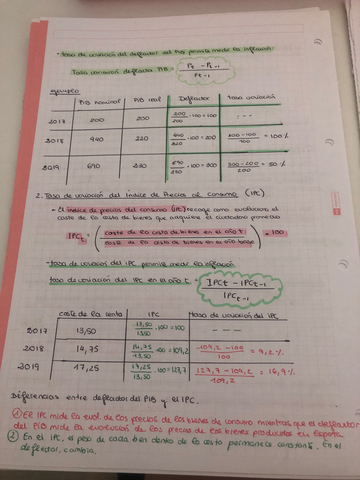 - tasa de variación del deflactor del PIB permite medir la inflación
Tasa variación deflactor PIB = Pt - Pt-1 / Pt-1
ejemplo
PIB nominal PIB real Deflactor tasa variación
2017 200 200 200/200 · 100 = 100 ---
2018 440 220 440/220 · 100 = 200 200-100/100 = 100%
2019 690 230 690/230 · 100 = 300 300-200/200 = 50%
2. Tasa de variación del Índice de Precios al consumo (IPC)
- El índice de precios del consumo (IPC) recoge como evoluciona el
coste de la cesta de bienes que adquiere el ciudadano promedio
IPCt = ( coste de la cesta de bienes en el año t / coste de la cesta de bienes en el año base ) · 100
- tasa de variación del IPC permite medir la inflación
tasa de variación del IPC en el año t = IPCt - IPCt-1 / IPCt-1
coste de la IPC tasa de variación del IPC
2017 13,50 13,50/13,50 · 100 = 100 ---
2018 14,75 14,75/13,50 · 100 = 109,2 109,2-100/100 = 9,2%
2019 17,25 17,25/13,50 · 100 = 127,7 127,7-109,2/109,2 = 16,9%
Diferencias entre deflactor del PIB y el IPC.
① El IPC mide la evol. de los precios de los bienes de consumo mientras que el deflactor
del PIB mide la evolución de los precios de los bienes producidos en España
② En el IPC, el peso de cada bien dentro de la cesta permanece constante. En el
deflactor, cambia.